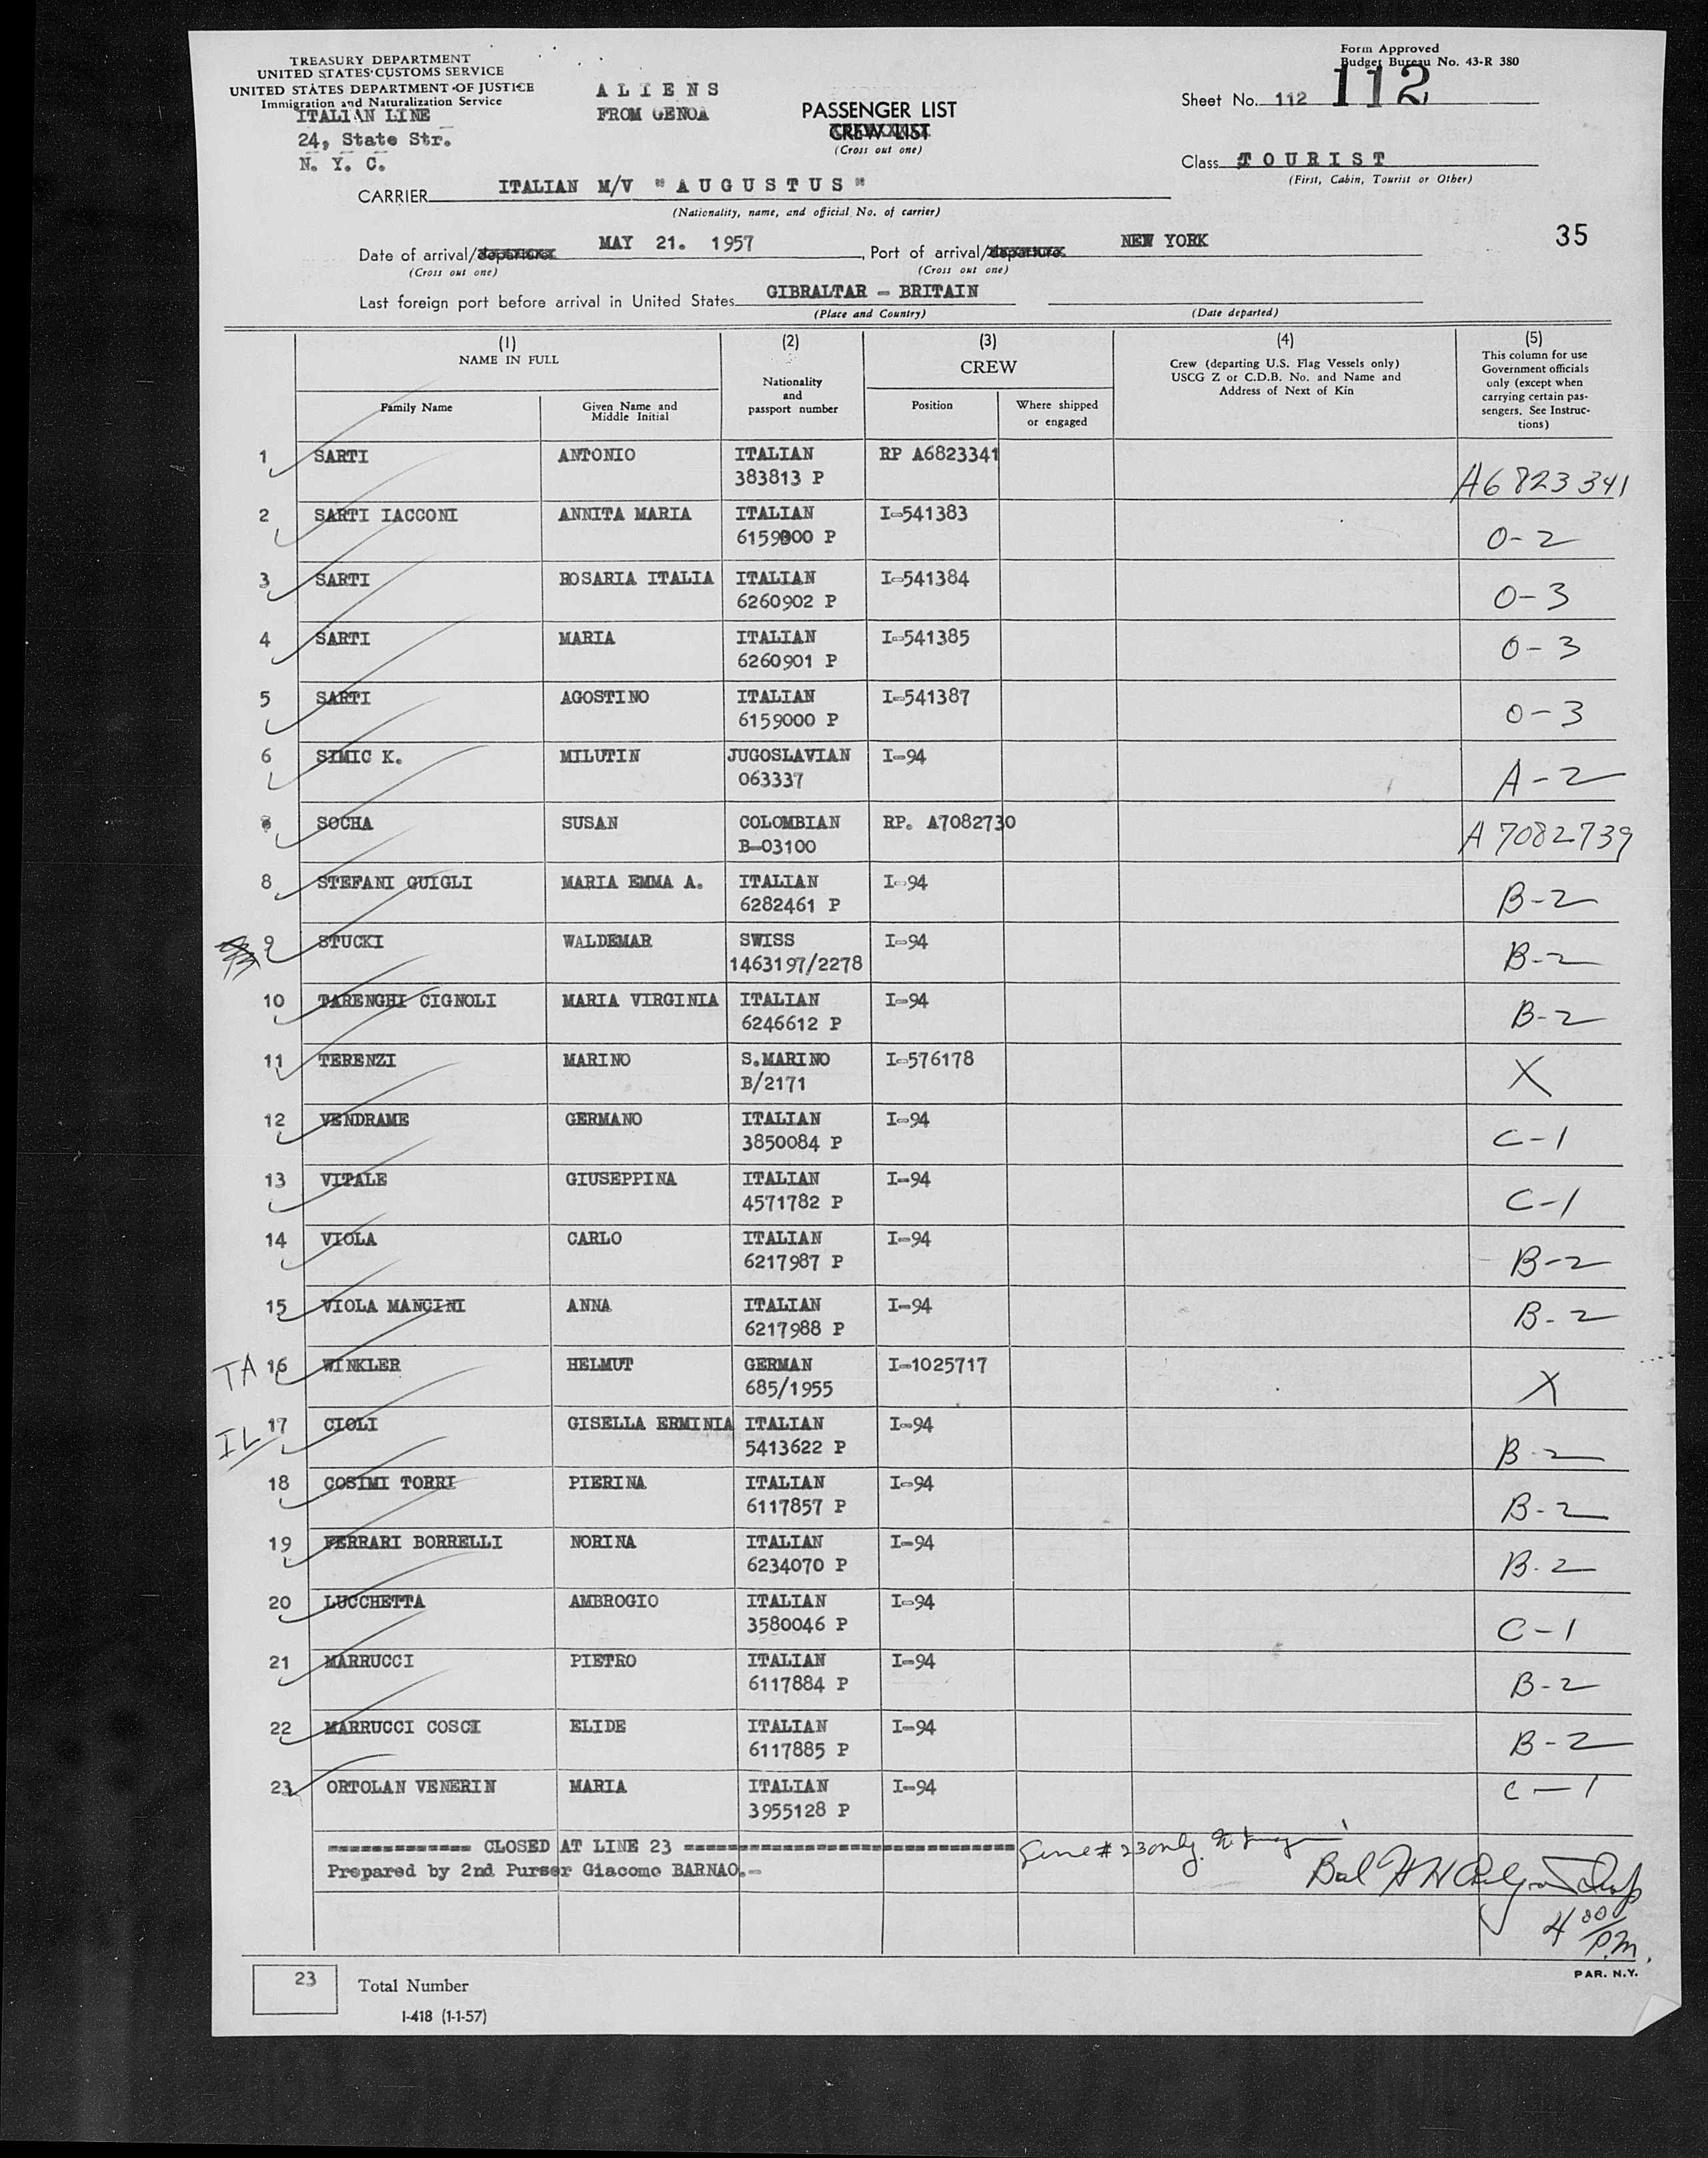 TREASURY DEPARTMENT
UNITED STATES CUSTOMS SERVICE
UNITED STATES DEPARTMENT OF JUSTICE
Immigration and Naturalization Service
ITALIAN LINE
24, State Str.
N. Y. C.
A L I E N S
FROM GENOA
PASSENGER LIST
CREW LIST
(Cross out one)
Form Approved
Budget Bureau No. 43-R 380
Sheet No. 112 112
Class TOURIST
(First, Cabin, Tourist or Other)
CARRIER ITALIAN M/V "AUGUSTUS"
(Nationality, name, and official No. of carrier)
35
Date of arrival/departure MAY 21. 1957, Port of arrival/departure NEW YORK
(Cross out one) (Cross out one)
Last foreign port before arrival in United States GIBRALTAR - BRITAIN
(Place and Country) (Date departed)
(1) NAME IN FULL
Family Name
Given Name and Middle Initial
(2) Nationality and passport number
(3) CREW
Position
Where shipped or engaged
(4) Crew (departing U.S. Flag Vessels only) USCG Z or C.D.B. No. and Name and Address of Next of Kin
(5) This column for use Government officials only (except when carrying certain passengers. See Instructions)
1 SARTI ANTONIO ITALIAN RP A6823341
383813 P A6823341
2 SARTI IACCONI ANNITA MARIA ITALIAN I-541383
6159000 P O-2
3 SARTI ROSARIA ITALIA ITALIAN I-541384
6260902 P O-3
4 SARTI MARIA ITALIAN I-541385
6260901 P O-3
5 SARTI AGOSTINO ITALIAN I-541387
6159000 P O-3
6 SIMIC K. MILUTIN JUGOSLAVIAN I-94
063337 A-2
SOCHA SUSAN COLOMBIAN RP. A7082730
B-03100 A7082739
8 STEFANI GUIGLI MARIA EMMA A. ITALIAN I-94
6282461 P B-2
9 STUCKI WALDEMAR SWISS I-94
1463197/2278 B-2
10 TARENGHI CIGNOLI MARIA VIRGINIA ITALIAN I-94
6246612 P B-2
11 TERENZI MARINO S.MARINO I-576178
B/2171 X
12 VENDRAME GERMANO ITALIAN I-94
3850084 P C-1
13 VITALE GIUSEPPINA ITALIAN I-94
4571782 P C-1
14 VIOLA CARLO ITALIAN I-94
6217987 P B-2
15 VIOLA MANCINI ANNA ITALIAN I-94
6217988 P B-2
TA 16 WINKLER HELMUT GERMAN I-1025717
685/1955 X
IL 17 CIOLI GISELLA ERMINIA ITALIAN I-94
5413622 P B-2
18 COSIMI TORRI PIERINA ITALIAN I-94
6117857 P B-2
19 FERRARI BORRELLI NORINA ITALIAN I-94
6234070 P B-2
20 LUCCHETTA AMBROGIO ITALIAN I-94
3580046 P C-1
21 MARRUCCI PIETRO ITALIAN I-94
6117884 P B-2
22 MARRUCCI COSCI ELIDE ITALIAN I-94
6117885 P B-2
23 ORTOLAN VENERIN MARIA ITALIAN I-94 C-1
3955128 P
============ CLOSED AT LINE 23 ============================ # 23 only.
Prepared by 2nd Purser Giacomo BARNAO.-
4 00 P.M.
PAR. N.Y.
23 Total Number
I-418 (1-1-57)